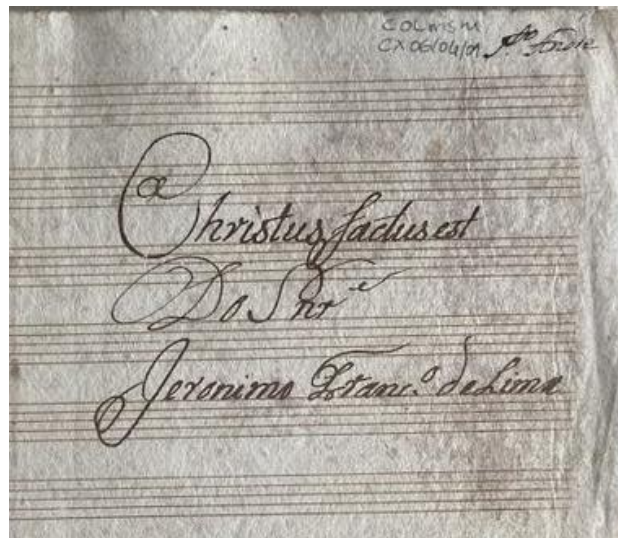 COLmsm
CX06/04/01
Christus factus est
Do Snr.e
Jeronimo Franc.o de Lima